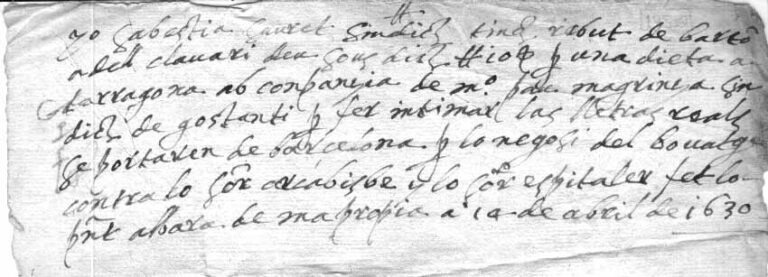 Jo Sabestia Gauret sindich tinch rebut de barto
adell clavari deu sous dich ## 10 s p una dieta a
tarragona ab conpanyia de m.º pau magrinya sin
dich de gostanti p fer intimar las lletras reals
se portaren de barcelona p lo negosi del bovatge
contra lo sor arcabisbe y lo sor espitaler fet lo
pnt albara de ma propia a 14 de abril de 1630